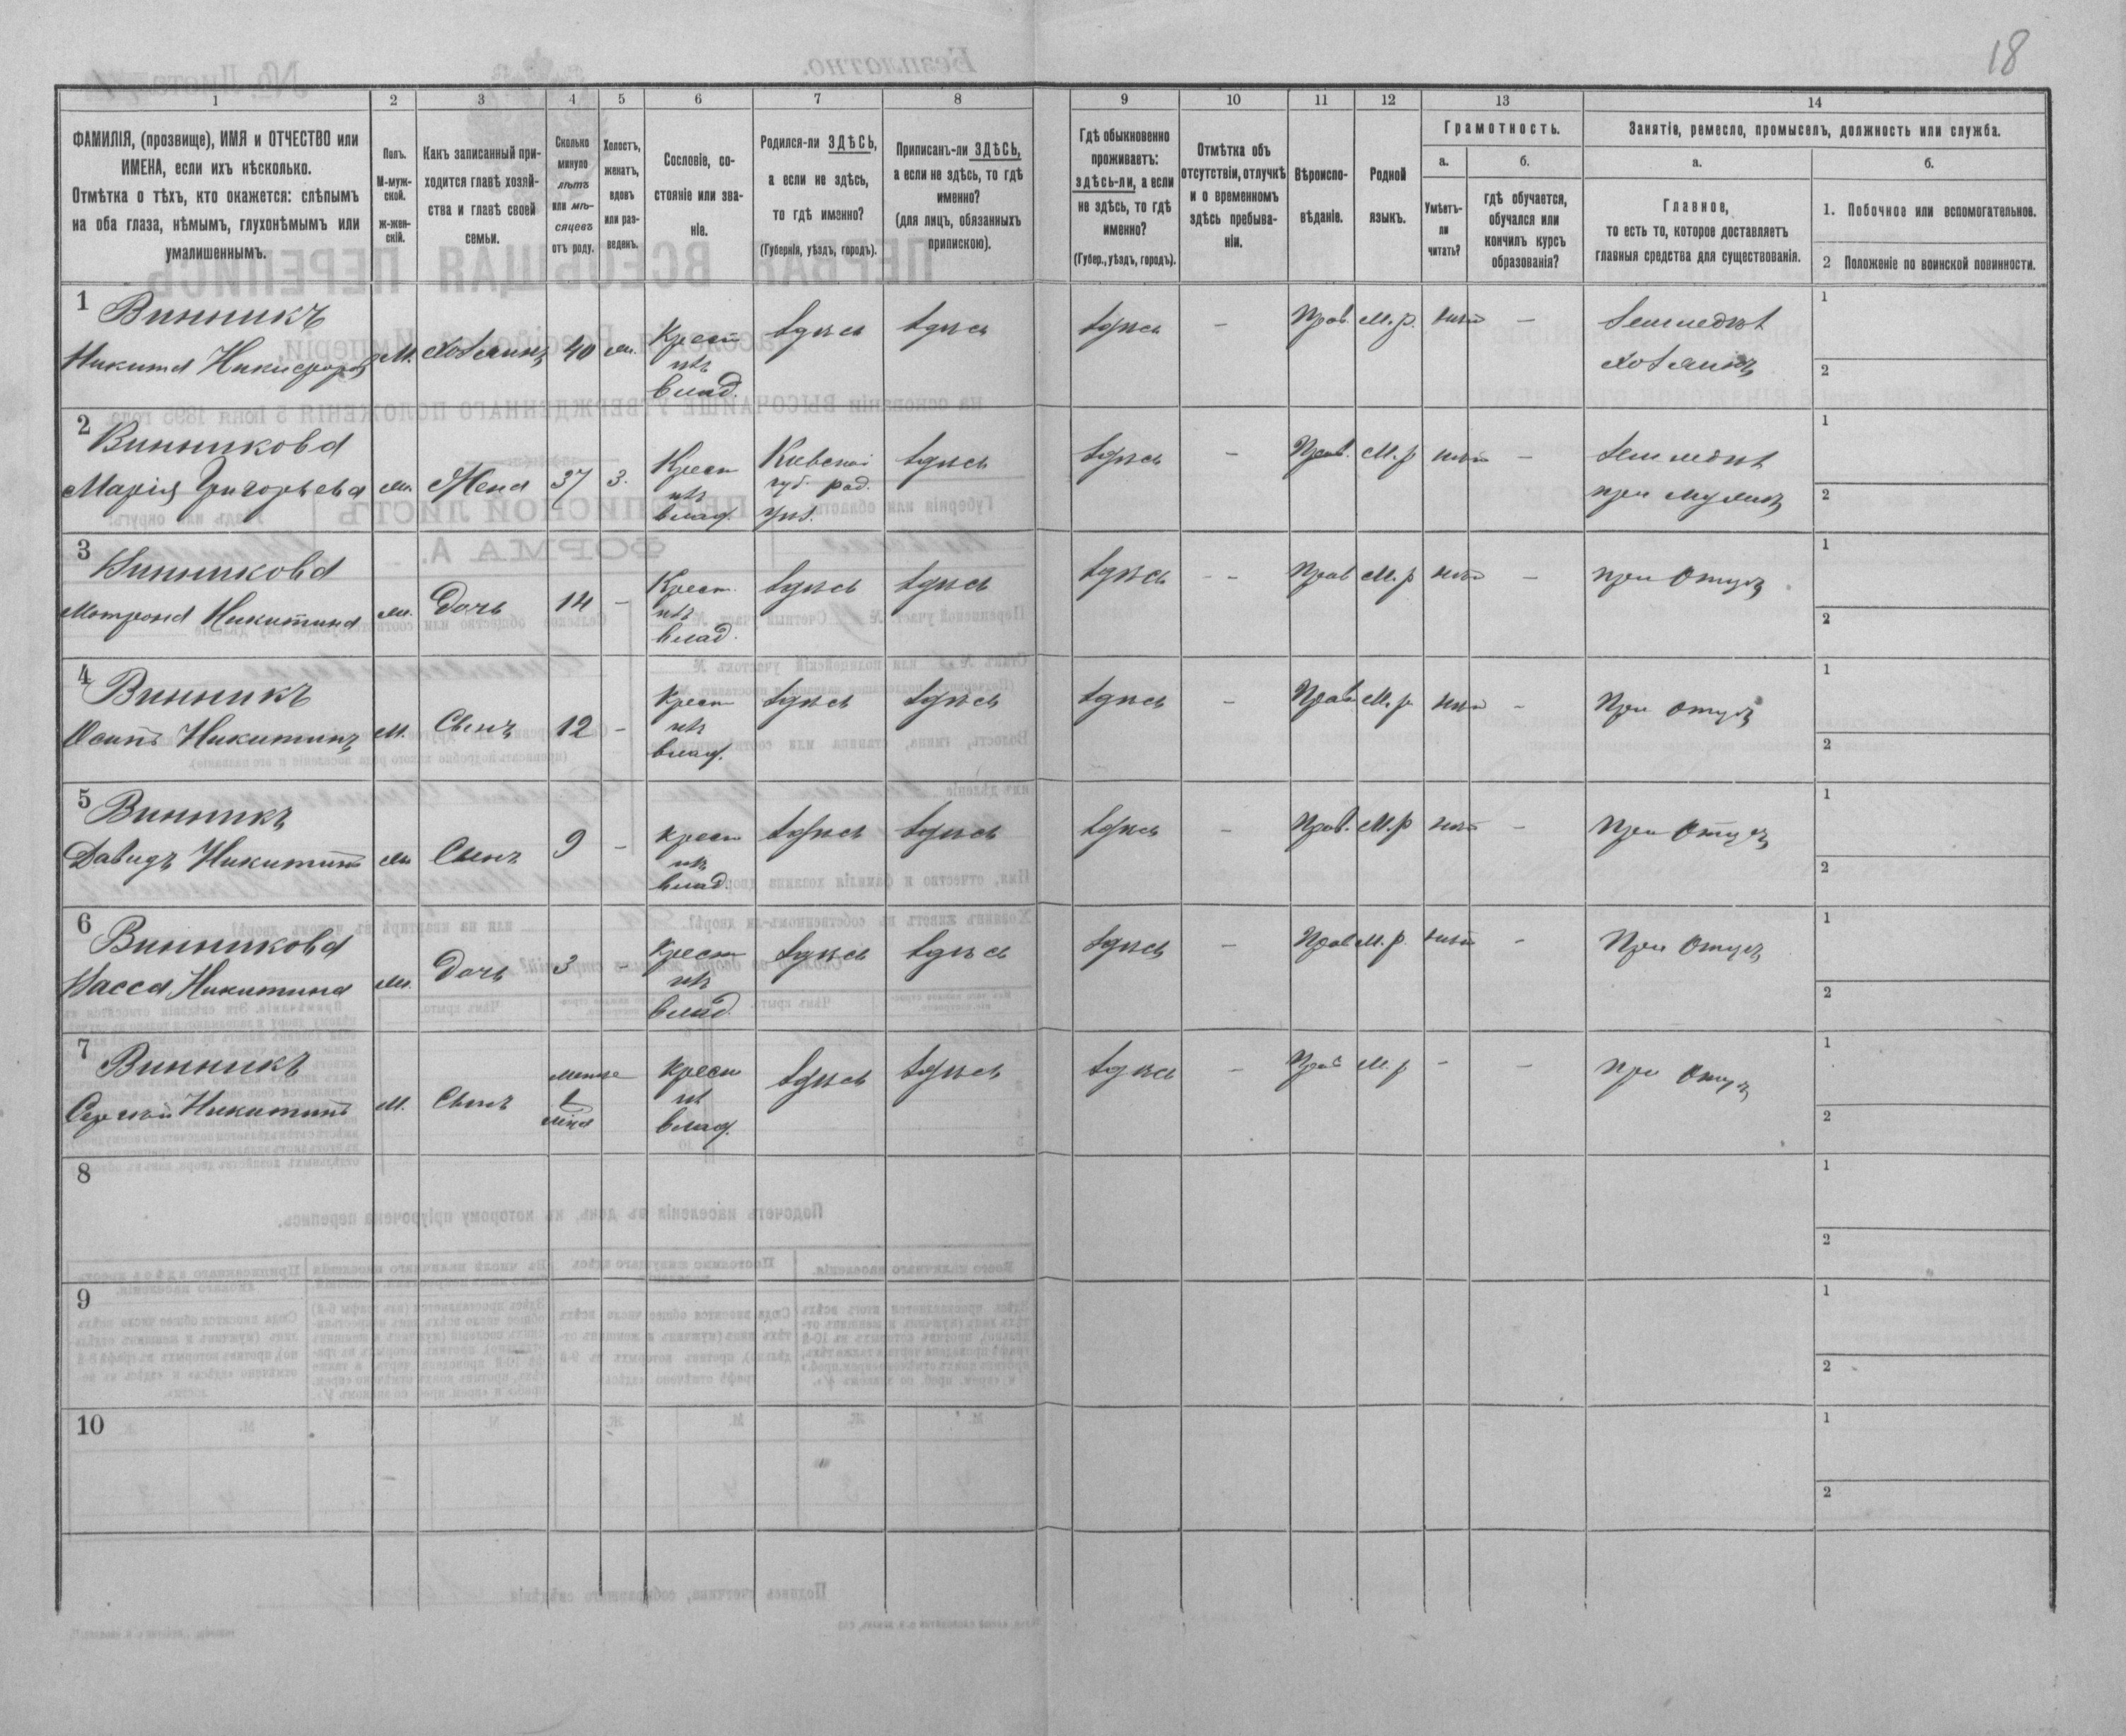 18
1 2 3 4 5 6 7 8 9 10 11 12 13 14
ФАМИЛІЯ, (прозвище), ИМЯ и ОТЧЕСТВО или
ИМЕНА, если ихъ нѣсколько.
Отмѣтка о тѣхъ, кто окажется: слѣпымъ
на оба глаза, нѣмымъ, глухонѣмымъ или
умалишеннымъ.
Полъ.
М-муж-
ской.
ж-жен-
скій.
Какъ записанный при-
ходится главѣ хозяй-
ства и главѣ своей
семьи.
Сколько
минуло
лѣтъ
или мѣ-
сяцевъ
отъ роду.
Холостъ,
женатъ,
вдовъ
или раз-
веденъ.
Сословіе, со-
стояніе или зва-
ніе.
Родился-ли ЗДѢСЬ,
а если не здѣсь,
то гдѣ именно?
(Губернія, уѣздъ, городъ).
Приписанъ-ли ЗДѢСЬ,
а если не здѣсь, то гдѣ
именно?
(для лицъ, обязанныхъ
припискою).
Гдѣ обыкновенно
проживаетъ:
здѣсь-ли, а если
не здѣсь, то гдѣ
именно?
(Губер., уѣздъ, городъ).
Отмѣтка объ
отсутствіи, отлучкѣ
и о временномъ
здѣсь пребыва-
ніи.
Вѣроиспо-
вѣданіе.
Родной
языкъ.
Грамотность.
а.
Умѣетъ-
ли
читать?
б.
гдѣ обучается,
обучался или
кончилъ курсъ
образованія?
Занятіе, ремесло, промыселъ, должность или служба.
а.
Главное,
то есть то, которое доставляетъ
главныя средства для существованія.
б.
1. Побочное или вспомогательное.
2 Положеніе по воинской повинности.
1 Винникъ
Никита Никифоровъ М. хозяинъ 40 Крест
изъ
влад. здѣсь здѣсь здѣсь — Прав. М. р. нѣтъ — земледѣл
хозяинъ
1
2
2 Винникова
Марія Григорьева Жена 37 з. Крест
изъ
влад. Кіевской
губ. рад.
уѣз. здѣсь здѣсь — Прав. М. р нѣтъ — земледѣл
при мужѣ
1
2
3 Винникова
Мотрона Никитина Дочь 14 — Крест.
изъ
влад. здѣсь здѣсь здѣсь — — Прав М. р нѣтъ — при Отцѣ
1
2
4 Винникъ
Осипъ Никитинъ М. Сынъ 12 — Крест
изъ
влад. здѣсь здѣсь здѣсь — Прав М. р нѣтъ — При отцѣ
1
2
5 Винникъ
Давидъ Никитинъ Сынъ 9 — крест
изъ
влад. здѣсь здѣсь здѣсь — Прав. М. р нѣтъ — При Отцѣ
1
2
6 Винникова
Васса Никитина Дочь 3 — Крест
изъ
влад. здѣсь здѣсь здѣсь — Прав М. р. нѣтъ — При Отцѣ
1
2
7 Винникъ
Сергѣй Никитинъ М. Сынъ менѣе
1
крест
изъ
влад. здѣсь здѣсь здѣсь — Прав М. р — — При Отцѣ
1
2
8
1
2
9
1
2
10
1
2